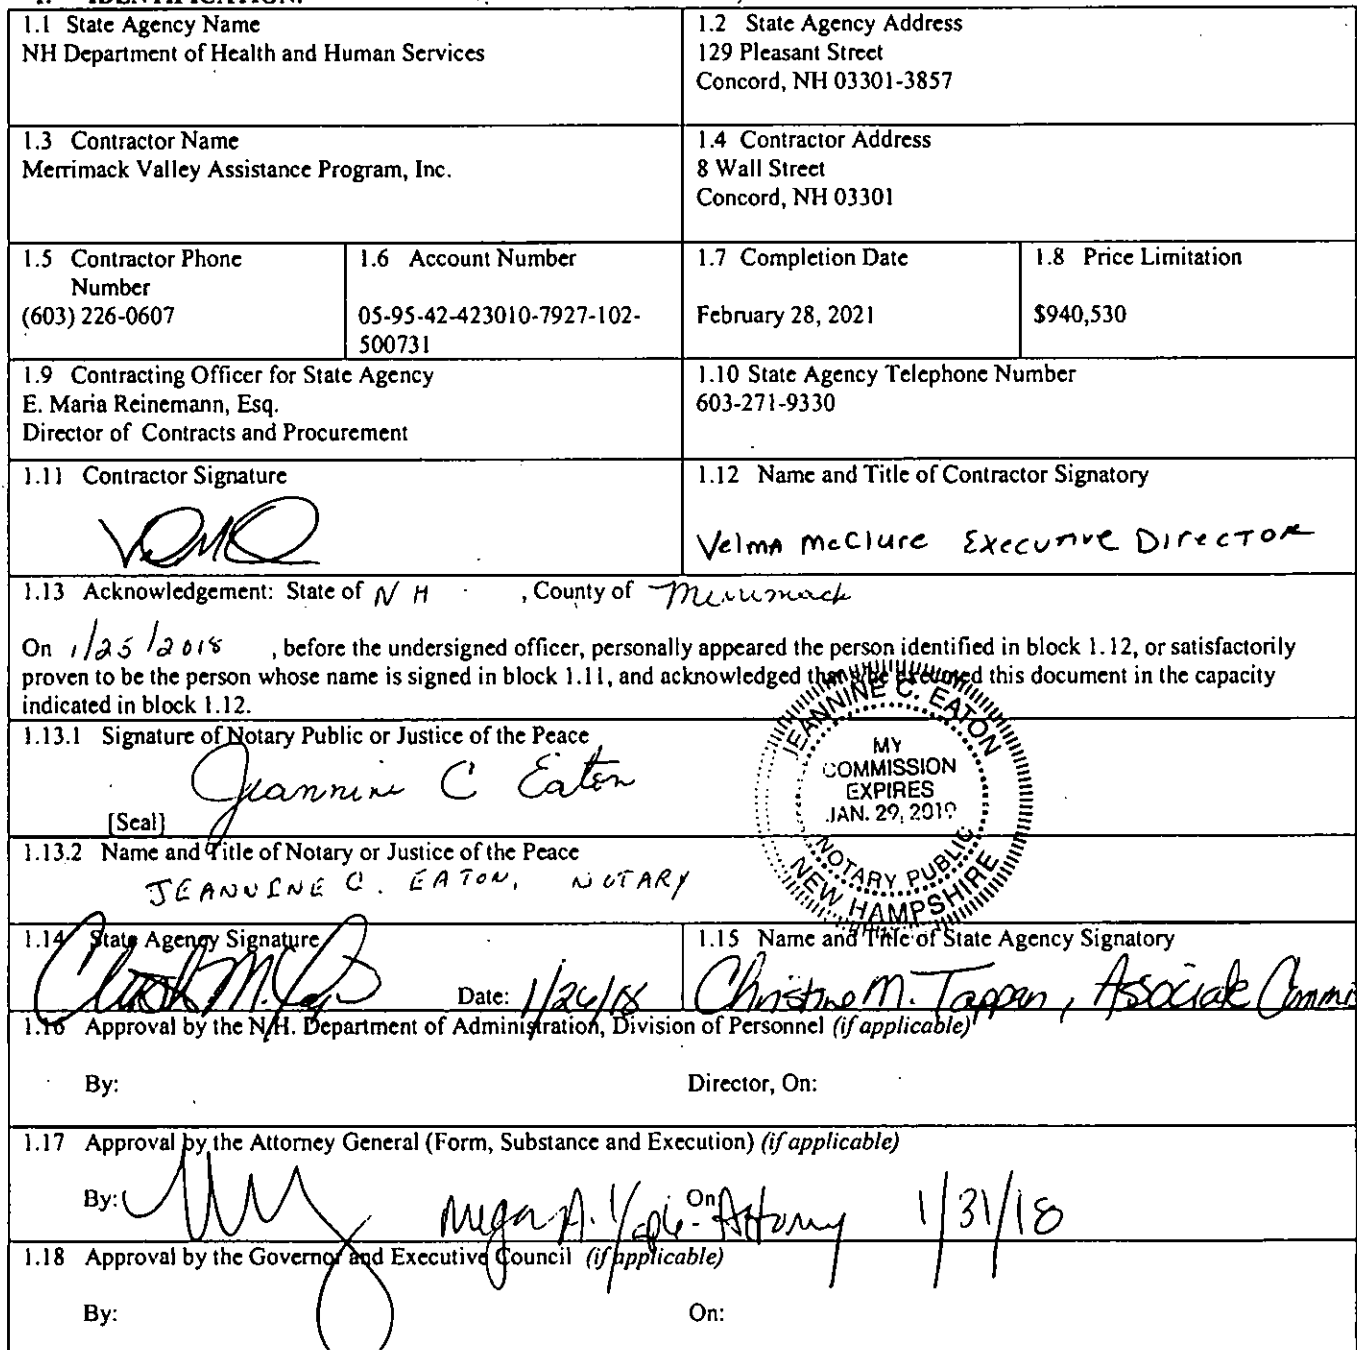 1.1 State Agency Name
NH Department of Health and Human Services
1.2 State Agency Address
129 Pleasant Street
Concord, NH 03301-3857
1.3 Contractor Name
Merrimack Valley Assistance Program, Inc.
1.4 Contractor Address
8 Wall Street
Concord, NH 03301
1.5 Contractor Phone
Number
(603) 226-0607
1.6 Account Number
05-95-42-423010-7927-102-
500731
1.7 Completion Date
February 28, 2021
1.8 Price Limitation
$940,530
1.9 Contracting Officer for State Agency
E. Maria Reinemann, Esq.
Director of Contracts and Procurement
1.10 State Agency Telephone Number
603-271-9330
1.11 Contractor Signature
1.12 Name and Title of Contractor Signatory
Velma McClure Executive Director
1.13 Acknowledgement: State of NH , County of Merrimack
On 1/25/2018 , before the undersigned officer, personally appeared the person identified in block 1.12, or satisfactorily
proven to be the person whose name is signed in block 1.11, and acknowledged that s/he executed this document in the capacity
indicated in block 1.12.
1.13.1 Signature of Notary Public or Justice of the Peace
Jeannine C Eaton
[Seal]
JEANNINE C. EATON
MY
COMMISSION
EXPIRES
JAN. 29, 2019
NOTARY PUBLIC
NEW HAMPSHIRE
1.13.2 Name and Title of Notary or Justice of the Peace
JEANNINE C. EATON, NOTARY
1.14 State Agency Signature
Date: 1/26/18
1.15 Name and Title of State Agency Signatory
Christine M. Tappan, Associate Commi
1.16 Approval by the N.H. Department of Administration, Division of Personnel (if applicable)
By: Director, On:
1.17 Approval by the Attorney General (Form, Substance and Execution) (if applicable)
By: Megan A. Yaple-Attorney On: 1/31/18
1.18 Approval by the Governor and Executive Council (if applicable)
By: On: